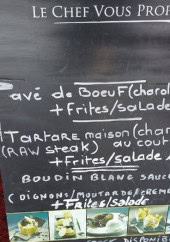 LE CHEF VOUS PROP
avé de BOEUF (charol
+ Frites/salade
TARTARE maison (char
(RAW steak) au cout
+ Frites/salade
BOUDIN BLANC SAUC
(OIGNONS/MOUTARDE/CREME
+ Frites/salade
DISPONIB